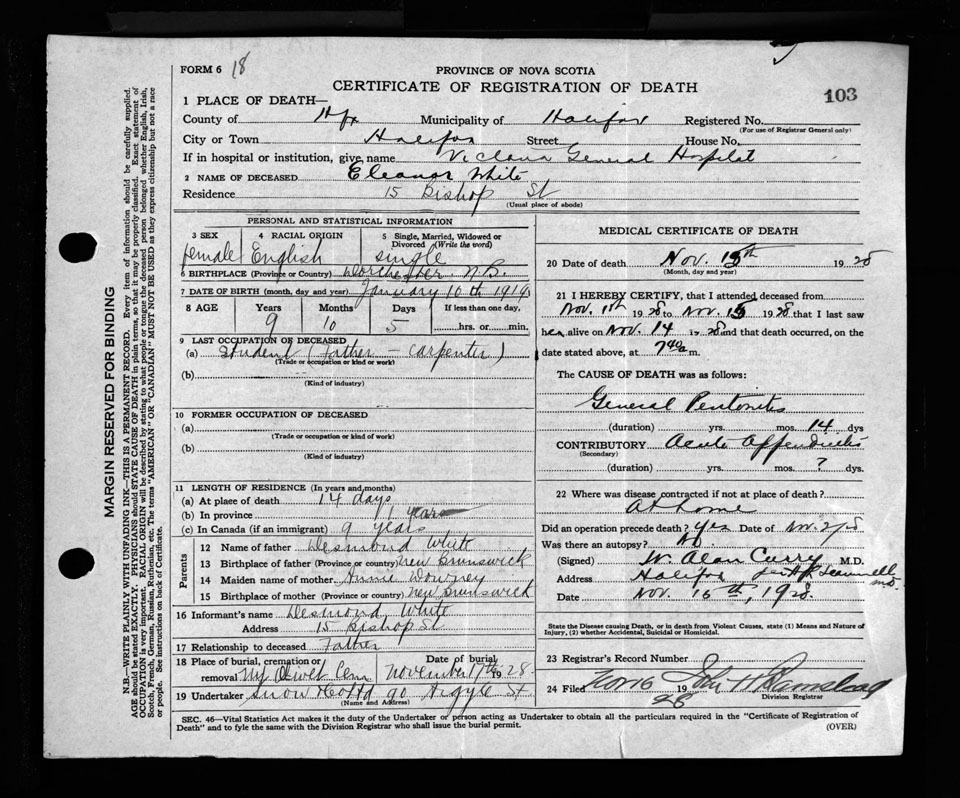 FORM 6 18
PROVINCE OF NOVA SCOTIA
CERTIFICATE OF REGISTRATION OF DEATH
103
1 PLACE OF DEATH—
County of Hfx Municipality of Halifax Registered No.
(For use of Registrar General only)
City or Town Halifax Street House No.
If in hospital or institution, give name Victoria General Hospital
2 NAME OF DECEASED Eleanor White
Residence 15 Bishop St
(Usual place of abode)
PERSONAL AND STATISTICAL INFORMATION
3 SEX 4 RACIAL ORIGIN 5 Single, Married, Widowed or Divorced (Write the word)
female English single
6 BIRTHPLACE (Province or Country) Dorchester N.B.
7 DATE OF BIRTH (month, day and year) January 10th 1919
8 AGE Years Months Days If less than one day,
9 10 5 hrs. or min.
9 LAST OCCUPATION OF DECEASED
(a) Student (Father - carpenter)
(Trade or occupation or kind of work)
(b)
(Kind of industry)
10 FORMER OCCUPATION OF DECEASED
(a)
(Trade or occupation or kind of work)
(b)
(Kind of industry)
11 LENGTH OF RESIDENCE (In years and months)
(a) At place of death 14 days
(b) In province 1 year
(c) In Canada (if an immigrant) 9 years
Parents
12 Name of father Desmond White
13 Birthplace of father (Province or country) New Brunswick
14 Maiden name of mother Annie Downey
15 Birthplace of mother (Province or country) New Brunswick
16 Informant's name Desmond White
Address 15 Bishop St
17 Relationship to deceased Father
18 Place of burial, cremation or removal Mt Olivet Cem Date of burial November 17th 1928.
19 Undertaker Snow Co Ltd 90 Argyle St
(Name and Address)
MEDICAL CERTIFICATE OF DEATH
20 Date of death Nov. 15th 1928
(Month, day and year)
21 I HEREBY CERTIFY, that I attended deceased from
Nov. 1st 1928 to Nov. 15 1928 that I last saw
her alive on Nov. 14 1928 and that death occurred, on the
date stated above, at 7 40 a m.
The CAUSE OF DEATH was as follows:
General Peritonitis
(duration) yrs. mos. 14 dys
CONTRIBUTORY Acute Appendicitis
(Secondary)
(duration) yrs. mos. ? dys.
22 Where was disease contracted if not at place of death?
At home
Did an operation precede death? yes Date of Nov. 2/28
Was there an autopsy? No
(Signed) W. Alan Curry M.D.
Address Halifax
Date Nov. 16th, 1928.
State the Disease causing Death, or in death from Violent Causes, state (1) Means and Nature of Injury, (2) whether Accidental, Suicidal or Homicidal.
23 Registrar's Record Number
24 Filed Nov 16 1928 John H
Division Registrar
SEC. 46—Vital Statistics Act makes it the duty of the Undertaker or person acting as Undertaker to obtain all the particulars required in the "Certificate of Registration of Death" and to fyle the same with the Division Registrar who shall issue the burial permit.
(OVER)
MARGIN RESERVED FOR BINDING
N.B.—WRITE PLAINLY WITH UNFADING INK—THIS IS A PERMANENT RECORD. Every item of information should be carefully supplied.
AGE should be stated EXACTLY. PHYSICIANS should STATE CAUSE OF DEATH in plain terms, so that it may be properly classified. Exact statement of
OCCUPATION is very important. RACIAL ORIGIN will be described by stating to what people or tongue the deceased person belonged whether English, Irish,
Scotch, French, German, Russian, Ruthenian, etc. The terms "AMERICAN" OR "CANADIAN" MUST NOT BE USED as they express citizenship but not a race
or people. See instructions on back of Certificate.